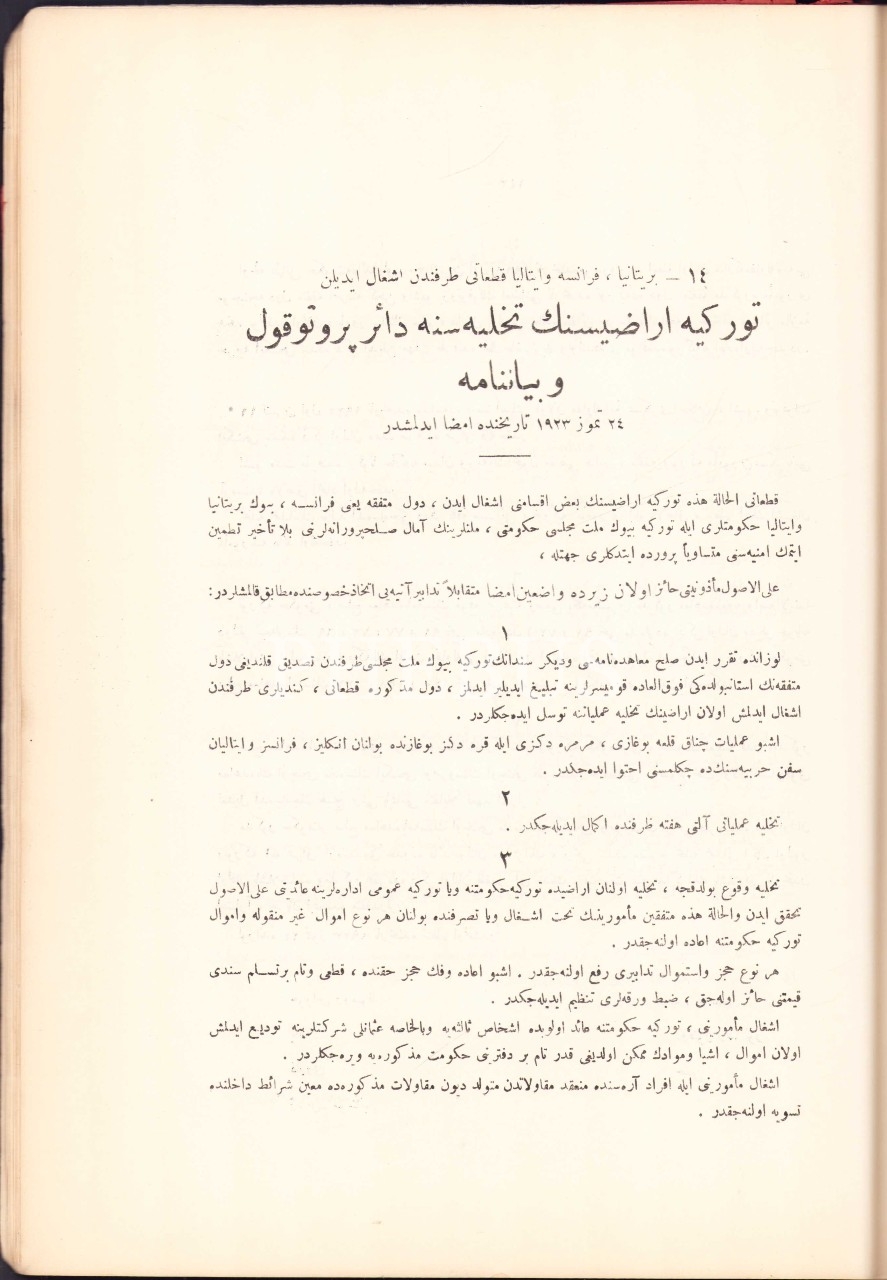 ١٤ — بریتانیا ، فرانسه وایتالیا قطعاتی طرفندن اشغال ایدیلن
تورکیه اراضیسنك تخلیه‌سنه دائر پروتوقول
و بیاننامه
٢٤ تموز ١٩٢٣ تاریخنده امضا ایدلمشدر
قطعاتی الحالة هذه تورکیه اراضیسنك بعض اقسامنی اشغال ایدن ، دول متفقه یعنی فرانسه ، بیوك بریتانیا
وایتالیا حکومتلری ایله تورکیه بیوك ملت مجلسی حکومتی ، ملتلرینك آمال صلحپرورانه‌لرینی بلا تأخیر تطمین
ایتمك امنیه‌سنی متساویاً پرورده ایتدکلری جهتله ،
علی الاصول مأذونیتی حائز اولان زیرده واضعین امضا متقابلاً تدابیر آتیه‌یی اتخاذ خصوصنده مطابق قالمشلردر :
١
لوزانده تقرر ایدن صلح معاهده‌نامه‌سی ودیکر سنداتك تورکیه بیوك ملت مجلسی طرفندن تصدیق قلندیغی دول
متفقه‌نك استانبولده‌کی فوق‌العاده قومیسرلرینه تبلیغ ایدیلیر ایدلمز ، دول مذکوره قطعاتی ، کندیلری طرفندن
اشغال ایدلمش اولان اراضینك تخلیه عملیاتنه توسل ایده‌جکلردر .
اشبو عملیات چناق قلعه بوغازی ، مرمره دکزی ایله قره دکز بوغازنده بولنان انکلیز ، فرانسز وایتالیان
سفن حربیه‌سنك‌ده چکلمسنی احتوا ایده‌جکدر .
٢
تخلیه عملیاتی آلتی هفته ظرفنده اکمال ایدیله‌جکدر .
٣
تخلیه وقوع بولدقجه ، تخلیه اولنان اراضیده تورکیه حکومتنه ویا تورکیه عمومی اداره‌لرینه عائدیتی علی الاصول
تحقق ایدن والحالة هذه متفقین مأمورینك تحت اشغال ویا تصرفنده بولنان هر نوع اموال غیر منقوله واموال
تورکیه حکومتنه اعاده اولنه‌جقدر .
هر نوع حجز واستموال تدابیری رفع اولنه‌جقدر . اشبو اعاده وفك حجز حقنده ، قطعی وتام برتسلم سندی
قیمتنی حائز اوله‌جق ، ضبط ورقه‌لری تنظیم ایدیله‌جکدر .
اشغال مأمورینی ، تورکیه حکومتنه عائد اولوبده اشخاص ثالثه‌یه وبالخاصه عثمانلی شرکتلرینه تودیع ایدلمش
اولان اموال ، اشیا وموادك ممکن اولدیغی قدر تام بر دفترینی حکومت مذکوره‌یه ویره‌جکلردر .
اشغال مأمورینی ایله افراد آره‌سنده منعقد مقاولاتدن متولد دیون مقاولات مذکوره‌ده معین شرائط داخلنده
تسویه اولنه‌جقدر .